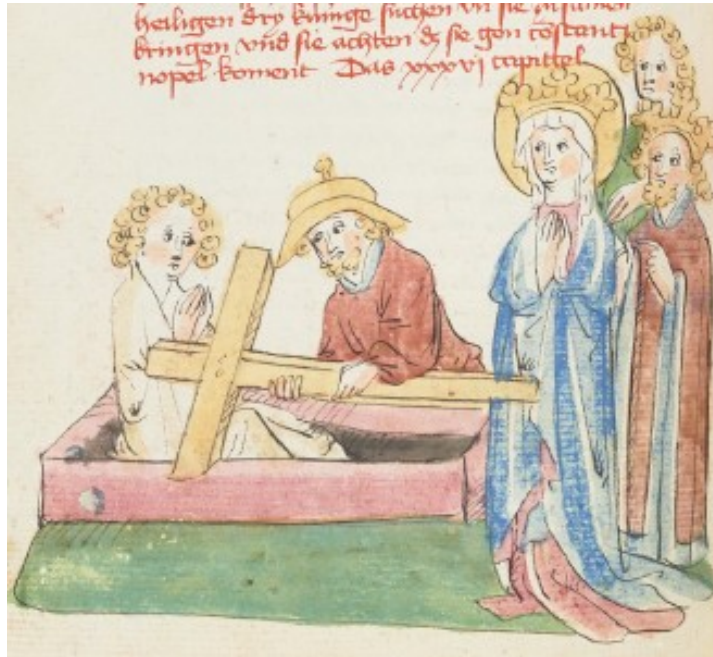 heiligen dry kunige suchen vn sie zusamen
bringen vnd sie achten dz sie gon costanti
nopel koment Das xxxvi capittel